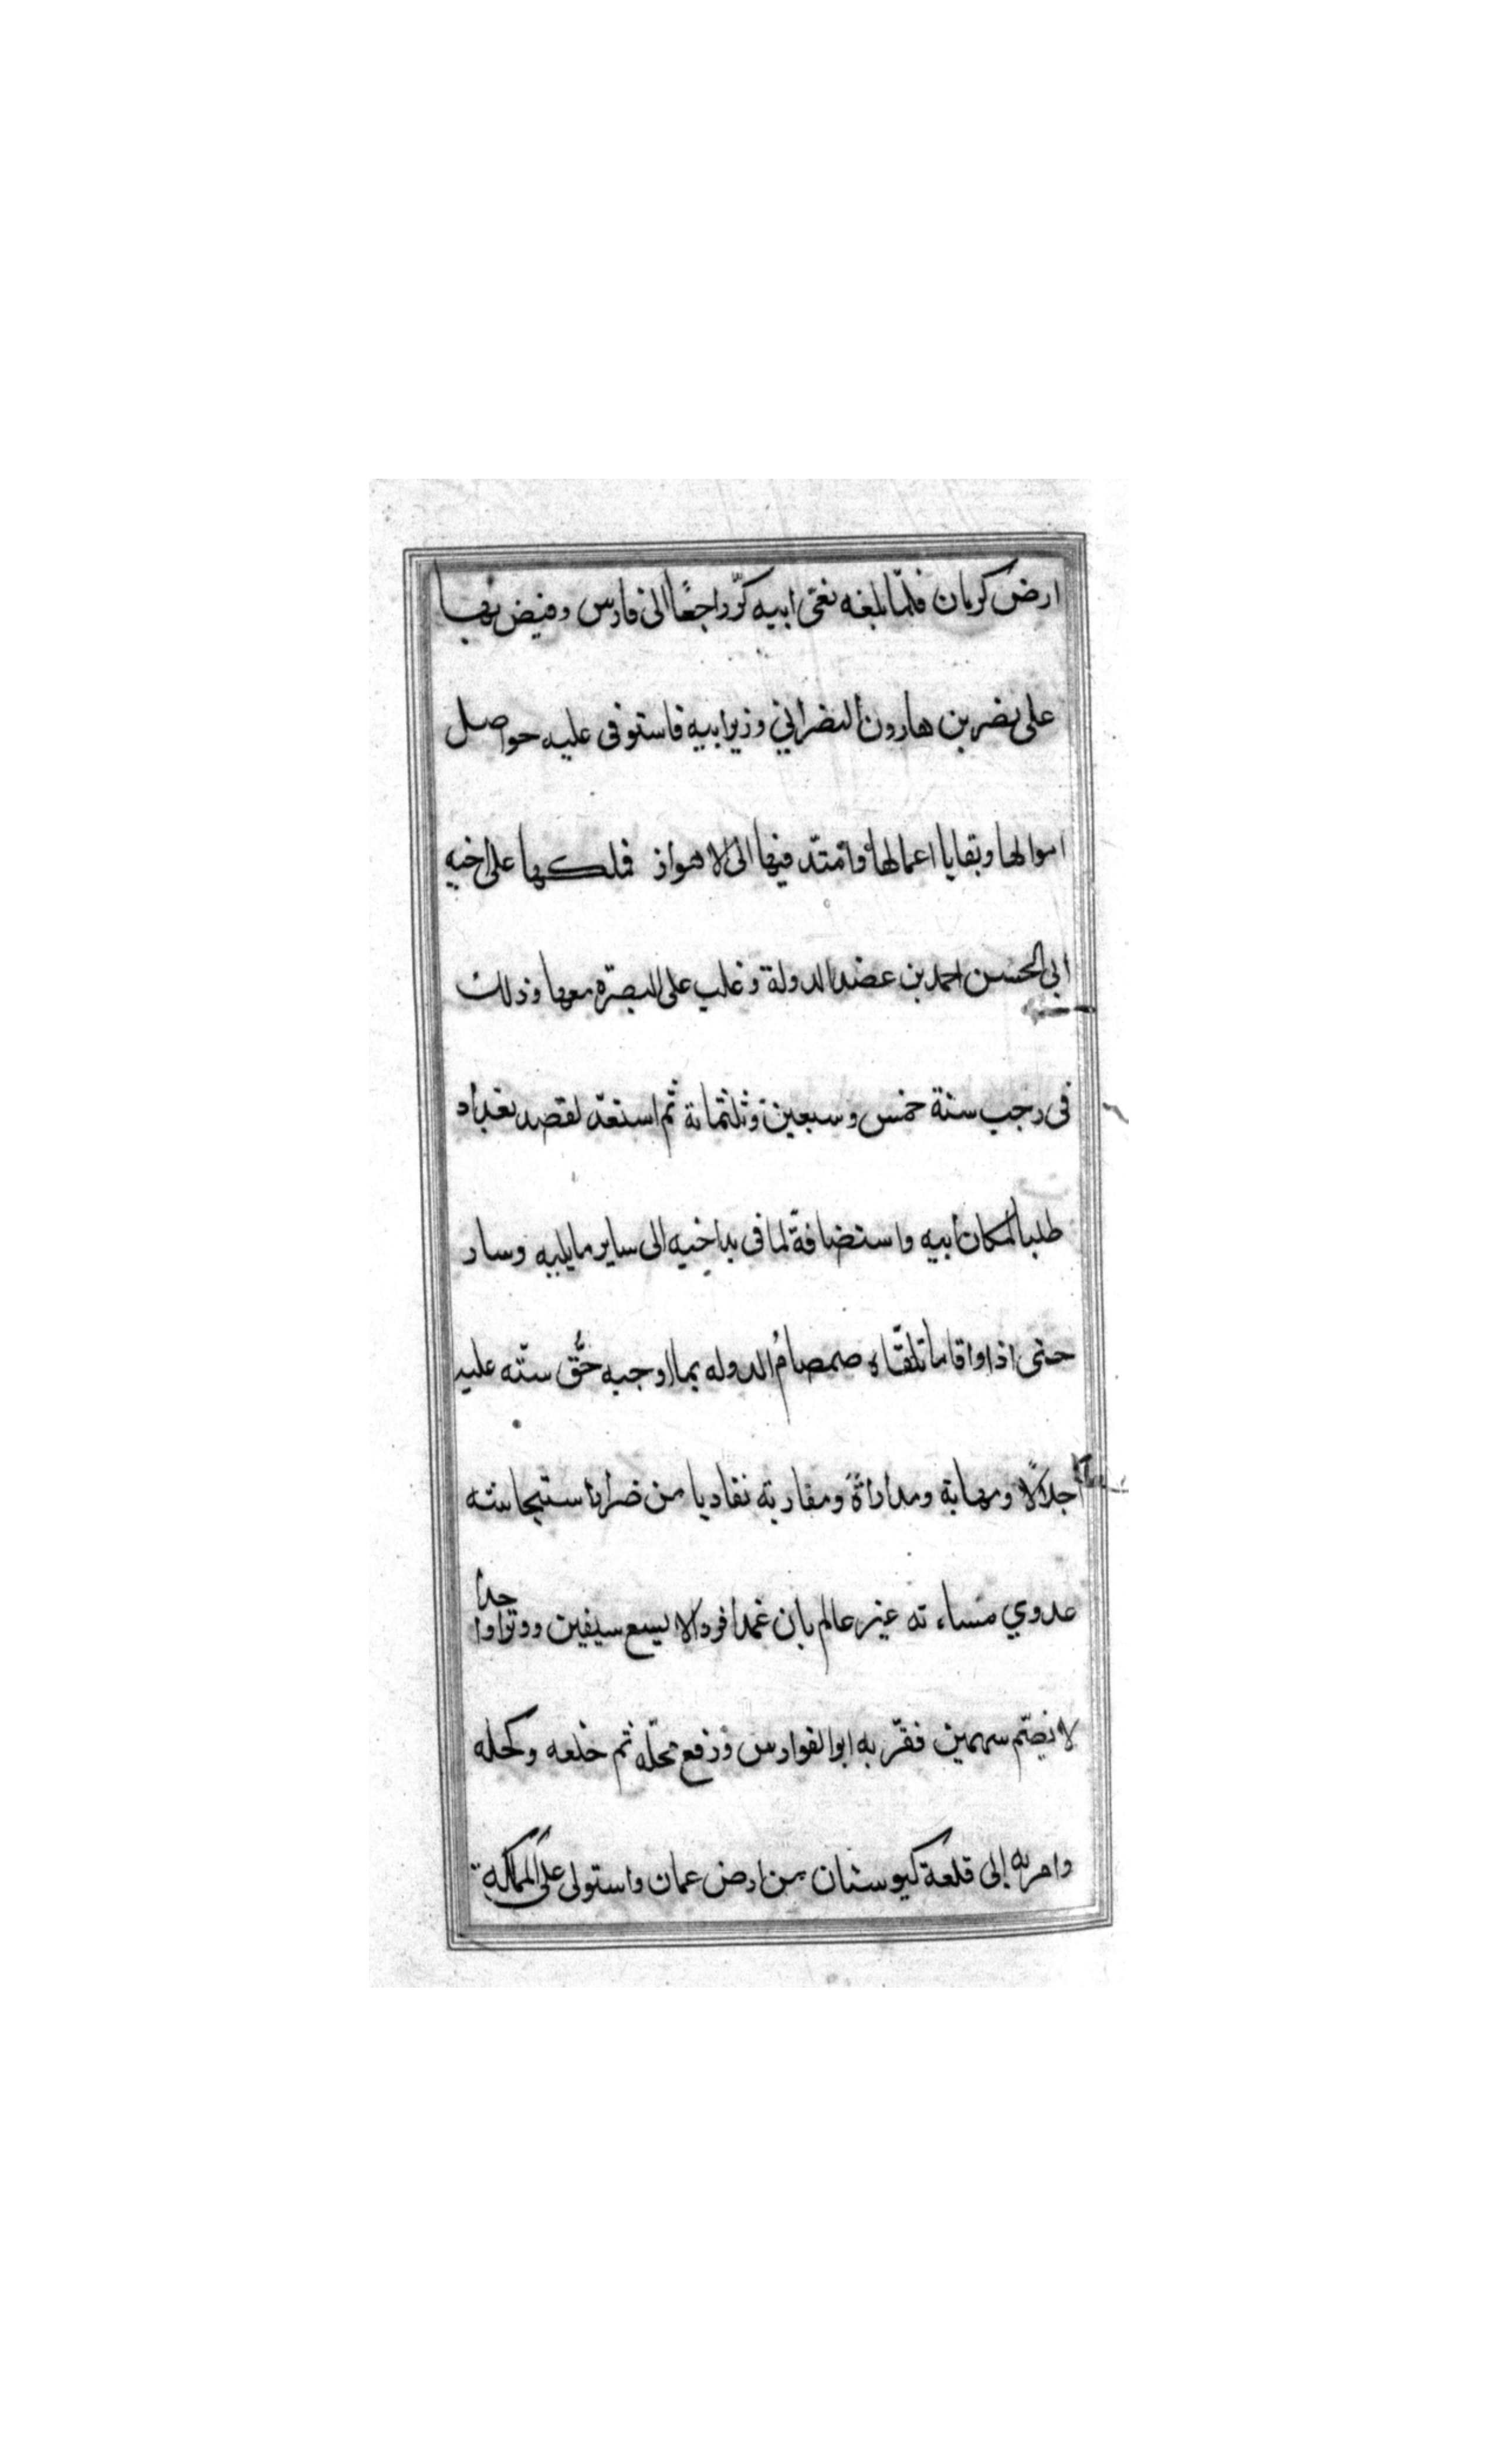 ارض كرمان فلمّا بلغه نعى ابيه كرّ راجعًا الى فارس وقبض بها
على نصر بن هارون النصراني وزير ابيه فاستوفى عليه حواصل
اموالها وبقايا اعمالها وامتدّ فيها الى الاهواز فملكها على اخيه
ابى الحسين احمد بن عضد الدولة وغلب على البصرة معها وذلك
فى رجب سنة خمس وسبعين وثلثمائة ثم استعدّ لقصد بغداد
طلبا لمكان ابيه واستضافة لما فى يد اخيه الى ساير مايليه وسار
حتى اذا وافاها تلقّاه صمصامُ الدوله بما اوجبه حقُّ سنّه عليه
اجلالًا ومهابة ومداراةً ومقاربة تفاديا من ضراب استيحاشه
عدوي مساءته غير عالم بان غمدا فردا لا يسع سيفين ووتراواحدا
لا يضمّ سهمين فقرّ به ابو الفوارس ورفع محلّه ثم خلعه وكحله
وامر به إلى قلعة كيوستان من ارض عمان واستولى على المملكة